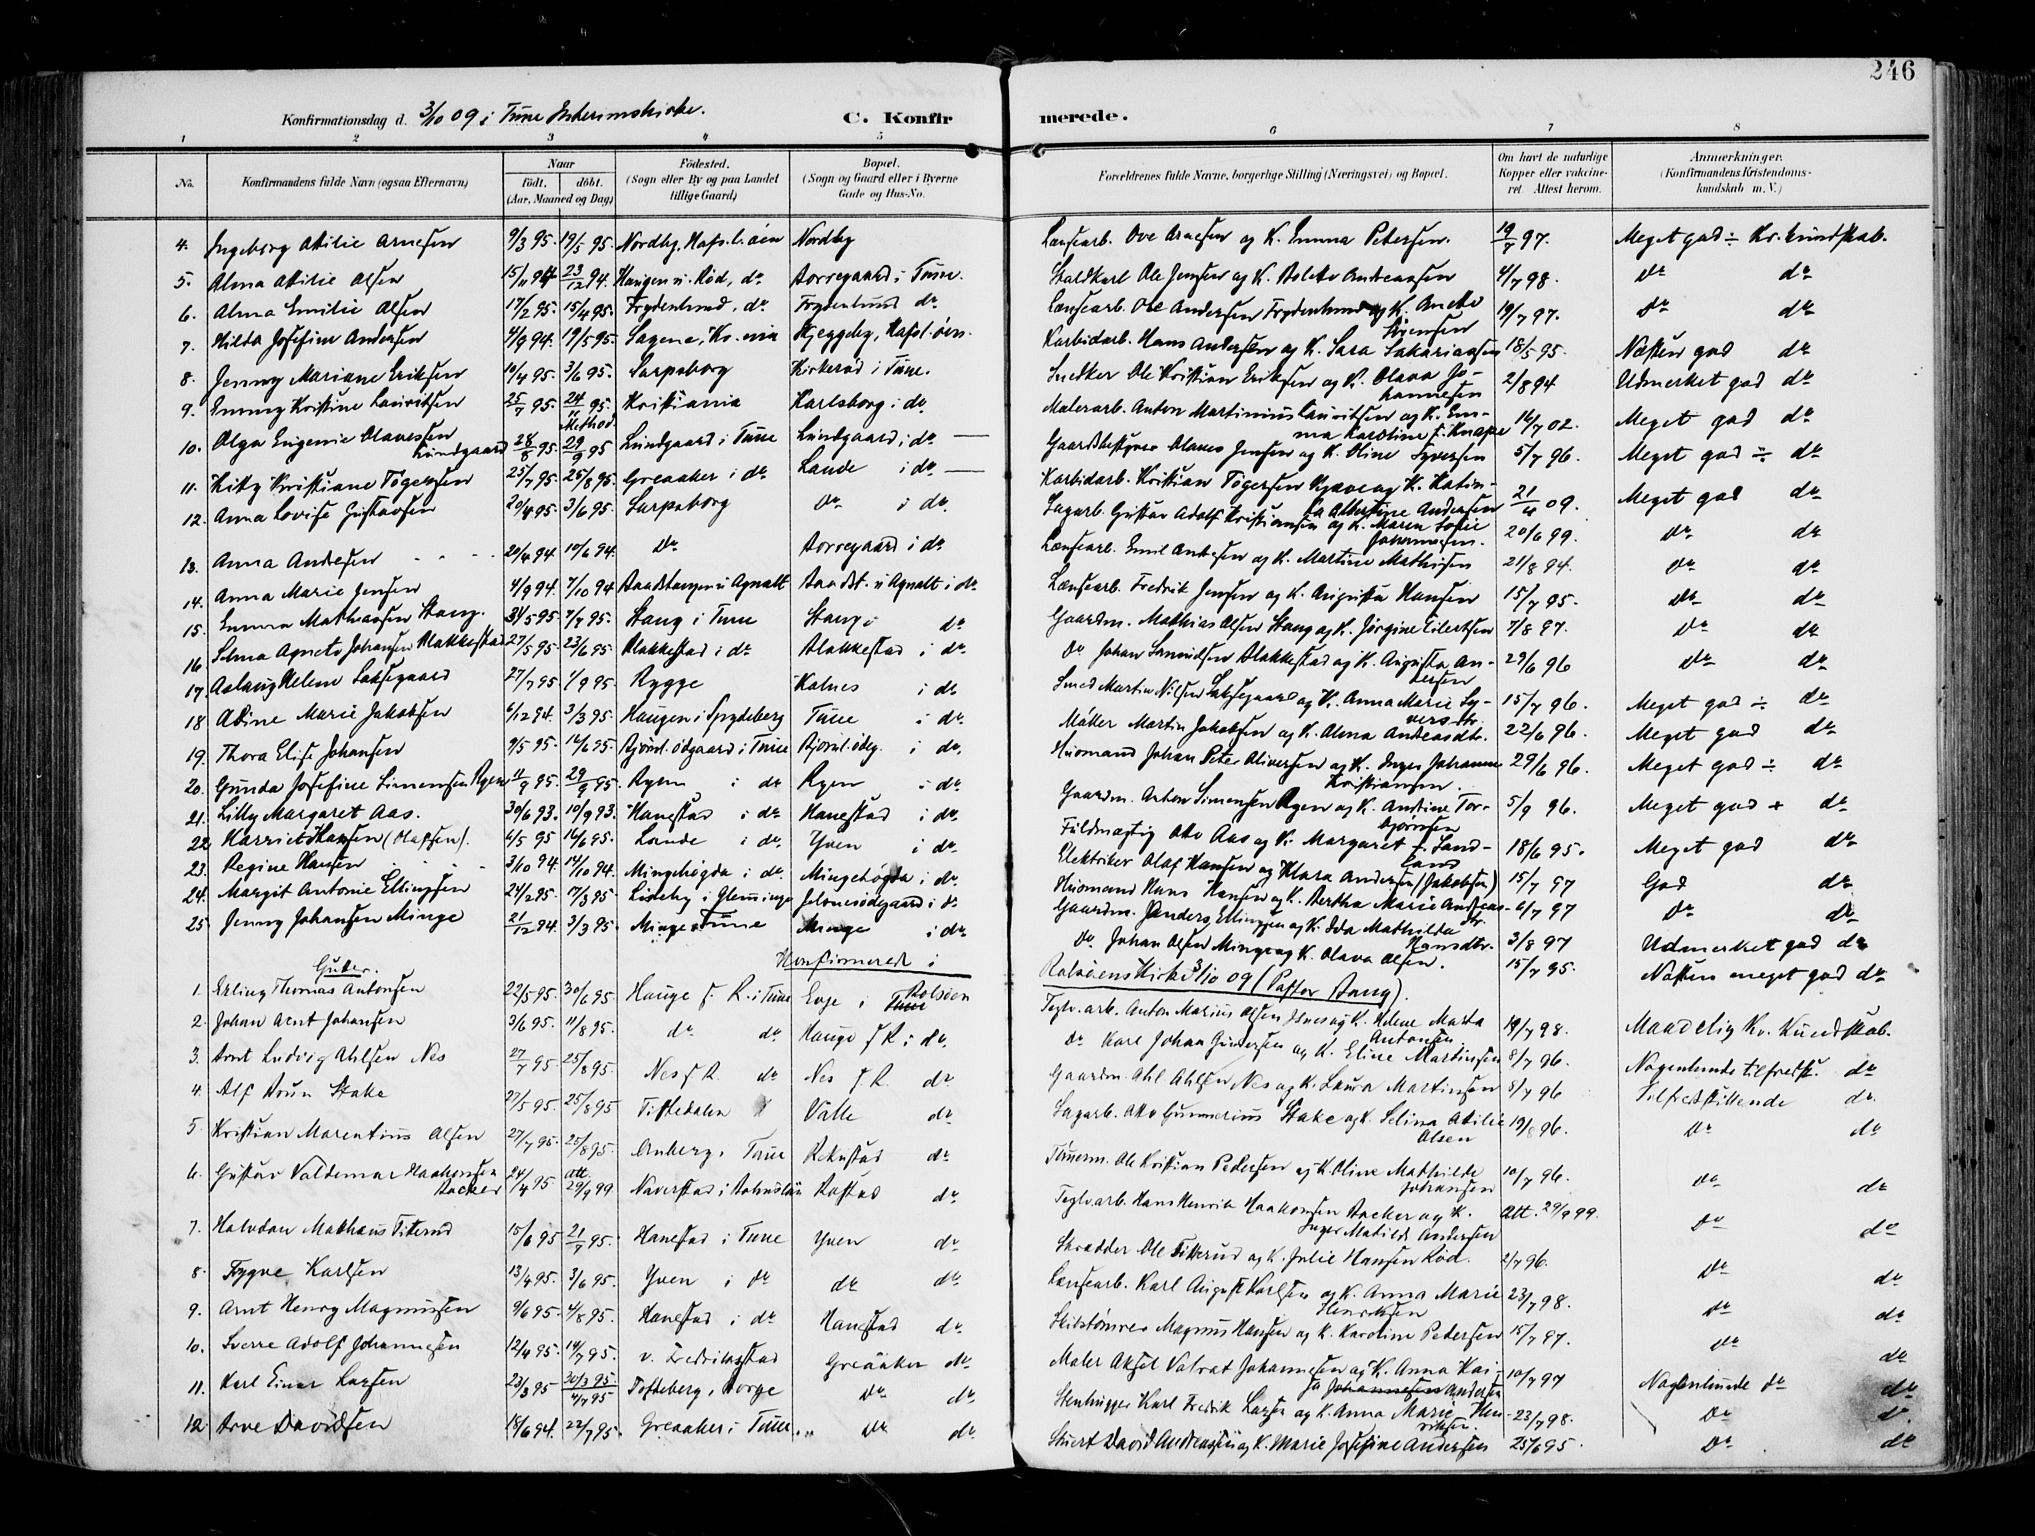 246
Konfirmationsdag d. 3/10 09 i Tune Interimskirke. C. Konfirmerede.
1 2 3 4 5 6 7 8
No. Konfirmandens fulde Navn (ogsaa Efternavn) Naar født. døbt. (Aar, Maaned og Dag) Födested. (Sogn eller By og paa Landet tillige Gaard) Bopæl. (Sogn og Gaard eller i Byerne Gade og Hus-No. Forældrenes fulde Navne, borgerlige Stilling (Næringsvei) og Bopæl. Om havt de naturlige Kopper eller vakcineret. Attest herom. Anmærkninger. (Konfirmandens Kristendomskundskab m. V.)
4. Ingeborg Otilie Arnesen 9/3 95. 19/5 95. Nordby, Hafsl.öen Nordby Lænsearb. Ove Arnesen og K. Emma Petersen. 19/7 97. Meget god ÷ Kr. kundskab.
5. Alma Otilie Olsen 15/11 94 23/12 94. Haugen u. Röd, do Torregaard i Tune. Staldkarl Ole Jensen og K. Andreassen 4/7 98. Do do
6. Alma Emilie Olsen 17/2 95. 15/4 95. Frydenlund, do Frydenlund do Lænsearb. Ole Andersen Frydenlund og K. Anette Jörgensen 19/7 97. Do do
7. Hilda Josefine Andersen 4/9 94. 19/5 95. Sagene, Kr.ania Hjeggeby, Hafsl.öen. Karbidarb. Hans Andersen og K. Sara Sakariassen 18/5 95. Næsten god do
8. Jenny Mariane Eriksen 10/4 95. 3/6 95. Sarpsborg Kirkeröd i Tune. Snedker Ole Kristian Eriksen og K. Olava Johannesen 2/8 94 Udmerket god do
9. Emmy Kristine Lauritsen 25/7 95. 24/11 95. Method. Kristiania Karlsborg i do Malerarb. Anton Martinius Lauritsen og K. Emma Karoline f. Knape 16/7 02. Meget god do
10. Olga Eugenie Olavesen Lundgaard 28/8 95. 29/9 95 Lundgaard i Tune Lundgaard i do Gaardbestyrer Olaves Jensen og K. Oline Syversen 5/7 96. Meget god ÷ do
11. Kitty Kristiane Tögersen 25/7 95. 25/8 95. Greaaker i do Lande i do Karbidarb. Kristian Tögersen og K. Katinka Albertine Andersen 21/4 09. Meget god do
12. Anna Lovise Gustavsen 20/4 95. 3/6 95. Sarpsborg Do i do Sagarb. Gustav Adolf Kristiansen og K. Maren Sofie Johannesen. 20/6 99. Do do
13. Anna Andresen 20/4 94. 10/6 94. Do Torregaard i do Lænsearb. Emil Andresen og K. Martine Mathisen 21/8 94. Do do
14. Anna Marie Jensen 4/9 94. 7/10 94 Baadstangen u Agnalt Baadst. u Agnalt i do Lænsearb. Fredrik Jensen og K. Augusta Hansen 15/7 95. Do do
15. Emma Mathiassen Stang. 31/5 95. 7/7 95. Stang i Tune Stang i do Gaardm. Mathias Olsen Stang og K. Jörgine Eilertsen 7/8 97. Do do
16. Selma Agnete Johansen Blakkestad 27/5 95. 23/6 95. Blakkestad i do Blakkestad i do Do Johan Samuelsen Blakkestad og K. Augusta Andersen 29/6 96 Do do
17. Aslaug Helene Laksegaard 27/7 95. 1/9 95. Rygge Kalnes i do Smed Martin Nilsen Laksegaard og K. Anna Marie Syversdtr. 15/7 96. Meget god ÷ do
18. Aline Marie Jakobsen 6/12 94. 3/3 95. Haugen i Spydeberg Tune i do. Møller Martin Jakobsen og K. Alma Andreasdtr. 22/6 96. Meget god do
19. Thora Elise Johansen 9/5 95. 16/6 95. Bjørnl.ødgaard i Tune Bjørnl.ødeg. i do. Husmand Johan Peter Oliversen og K. Inger Johanne Kristiansen. 29/6 96. Meget god ÷ do
20. Gunda Josefine Simensen Ryen 11/9 95. 29/9 95. Ryen i do Ryen i do. Gaardm. Anton Simensen Ryen og K. Andrine Torbjørnsen 5/9 96. Meget god + do
21. Lilly Margaret Aas. 30/6 93. 10/9 93. Hanestad i do Hanestad i do. Fuldmægtig Otto Aas og K. Margaret f. Landland 18/6 95. Meget god do
22. Harriet Hansen (Olafsen). 6/5 95 16/6 95. Lande i do. Yven i do. Elektriker Olaf Hansen og Klara Andersen (Jakobsen) 15/7 97 God do
23. Regine Hansen 3/10 94. 14/10 94. Mingehøgda i do. Mingehøgda i do. Husmand Hans Hansen og K. Bertha Marie Andreasdtr. 6/7 97 Do do
24. Margit Antonie Ellingsen 24/2 95. 17/3 95. Lideby i Glemminge i do Gaardm. Anders Ellingsen og K. Ida Mathilda Hansdtr. 3/8 97 Udmerket god do
25. Jenny Johansen Minge 21/12 94. 3/3 95. Minge i Tune Minge i do. Do. Johan Olsen Minge og K. Olava Olsen. 15/7 95. Næsten meget god do
Gutter. Konfirmerede i Rolsøens Kirke 3/10 09 (Pastor Stang).
1. Erling Thomas Antonsen 22/5 95. 30/6 95. Hauge f. R. i Tune Evje i Rolsöen Teglv.arb. Anton Marius Olsen og K. Helene Marta Antonsen 19/7 98. Maadelig Kr. Kundskab.
2. Johan Arnt Johansen 3/6 95. 11/8 95. do do. Hauge f R. i do. Do Karl Johan Gundersen og K. Eline Martinsen 8/7 96. Nogenlunde tilfredst. do
3. Arnt Ludvig Ahlsen Nes 27/7 95. 25/8 95. Nes f R. do Nes f R. do Gaardm. Ahl Ahlsen Nes og K. Laura Martinsen 8/7 96 Tilfredsstillende do.
4. Alf Stake 27/5 95. 25/8 95 Tistedalen Valle do Sagarb. Otto Gunnerius Stake og K. Selina Otilie Olsen 19/8 96. Do do
5. Kristian Marentius Olsen 27/7 95. 25/8 95. Arnberg i Tune Rekustad do Tömerm. Ole Kristian Pedersen og K. Oline Mathilde Johansen 10/7 96. Do do
6. Gustav Valdemar Haakonsen Backer 24/4 95. Att. 29/9 99. Naverstad i Bohuslän Rostad do. Teglv.arb. Hans Henrik Haakonsen Backer og K. Inger Matilde Andersen Att. 29/9 99. Do do
7. Halvdan Mathæus Fiterud 15/6 95 21/7 95. Hanestad i Tune Yven do Skrædder Ole Fiterud og K. Julie Hansen Röd. 2/7 96. Do do
8. Trygve Karlsen 13/4 95. 3/6 95. Yven i do do do. Lænsearb. Karl August Karlsen og K. Anna Marie Henriksen 23/7 98. Do do
9. Arnt Henry Magnussen 9/6 95. 4/8 95. Hanestad i do Hanestad do. Skibstømrer Magnus Hansen og K. Karoline Petersen 15/7 97. Do do
10. Sverre Adolf Johannesen 12/4 95. 14/7 95. v. Fredrikstad Greaaker do. Maler Aksel Johannesen og K. Anna Kaisa Andersen 10/7 97 Nogenlunde do do
11. Karl Einar Larsen 23/3 95 30/3 95. 4/7 95 Tofteberg, Borge Do do. Stenhugger Karl Fredrik Larsen og K. Anna Marie Henriksen 23/7 98. Do do
12 Arve Davidsen 18/6 94. 22/7 95. Greaaker i Tune Do do. Stuert David Andreassen og K. Marie Josefine Andersen 25/6 95. Do do